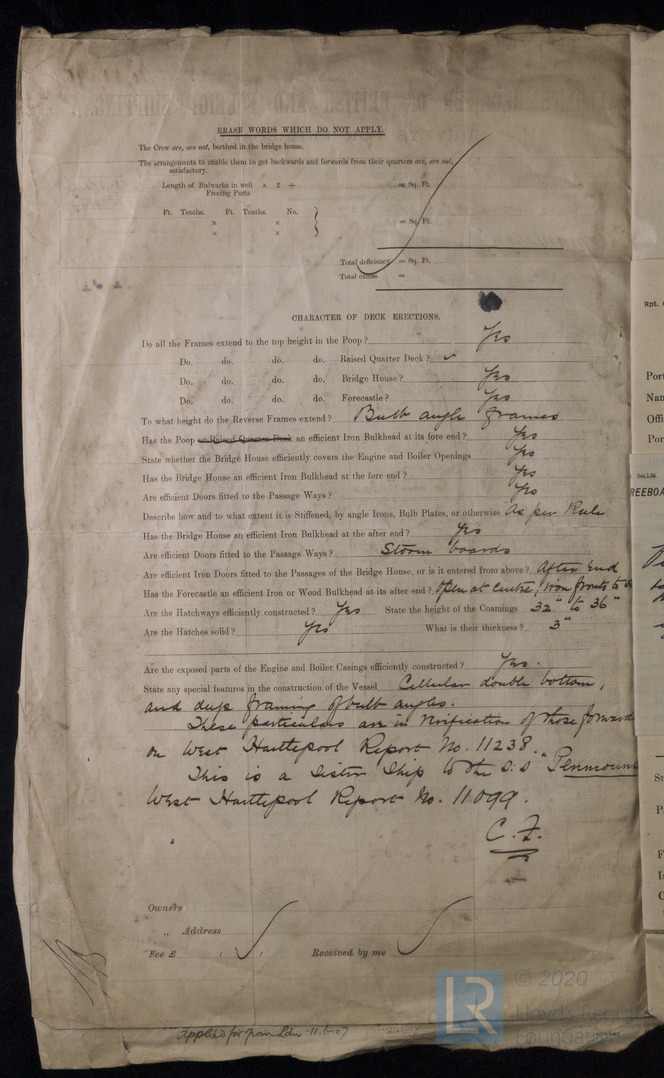 ERASE WORDS WHICH DO NOT APPLY.
The Crew are, are not, berthed in the bridge house.
The arrangements to enable them to get backwards and forwards from their quarters are, are not,
satisfactory.
Length of Bulwarks in well × 2 ÷ = Sq. Ft.
Freeing Ports
Ft. Tenths. Ft. Tenths. No.
× × = Sq. Ft.
× ×
Total deficiency = Sq. Ft.
Total excess =
CHARACTER OF DECK ERECTIONS.
Do all the Frames extend to the top height in the Poop? Yes
Do. do. do. do. Raised Quarter Deck? ✓
Do. do. do. do. Bridge House? Yes
Do. do. do. do. Forecastle? Yes
To what height do the Reverse Frames extend? Bulb angle frames
Has the Poop or Raised Quarter Deck an efficient Iron Bulkhead at its fore end? Yes
State whether the Bridge House efficiently covers the Engine and Boiler Openings Yes
Has the Bridge House an efficient Iron Bulkhead at the fore end? Yes
Are efficient Doors fitted to the Passage Ways? Yes
Describe how and to what extent it is Stiffened, by angle Irons, Bulb Plates, or otherwise As per Rule
Has the Bridge House an efficient Iron Bulkhead at the after end? Yes
Are efficient Doors fitted to the Passage Ways? Storm boards
Are efficient Iron Doors fitted to the Passages of the Bridge House, or is it entered from above? After End
Has the Forecastle an efficient Iron or Wood Bulkhead at its after end? Open at Centre, iron fronts to
Are the Hatchways efficiently constructed? Yes State the height of the Coamings 32" to 36"
Are the Hatches solid? Yes What is their thickness? 3"
Are the exposed parts of the Engine and Boiler Casings efficiently constructed? Yes.
State any special features in the construction of the Vessel Cellular double bottom,
and deep framing of bulb angles.
These particulars are in of those forwarded
on West Hartlepool Report No. 11238.
This is a Sister Ship to the S.S "Penmount
West Hartlepool Report No. 11099.
C. F.
Owners
„ Address
Fee £ : : Received by me
applied for from Ldn 11.6.07
LR
© 2020
Lloyd's Register
Foundation
Rpt.
Port
Nam
Offi
Port
REEBOA